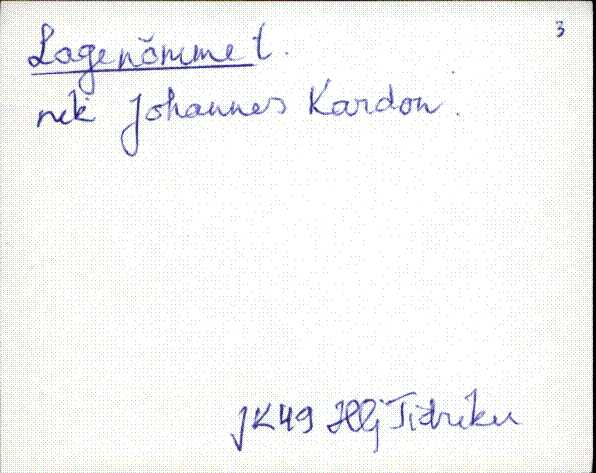 3
Lagenõmme t.
rek Johannes Kardon.
JK49 Hlj Tidriku